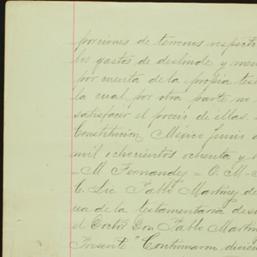 porciones de terrenos respecti
los gastos de deslinde y men
por cuenta de la propia tes
la cual por otra parte no
satisfacer el precio de ellas.
Constitucion, Mexico Junio
mil ochocientos ochenta y
- M. Fernandez = O. M. =
C. Lic Pablo Martinez de
cea de la testamentaria de
el Doctor Don Pablo Martin
Presente" Continuaron dicien